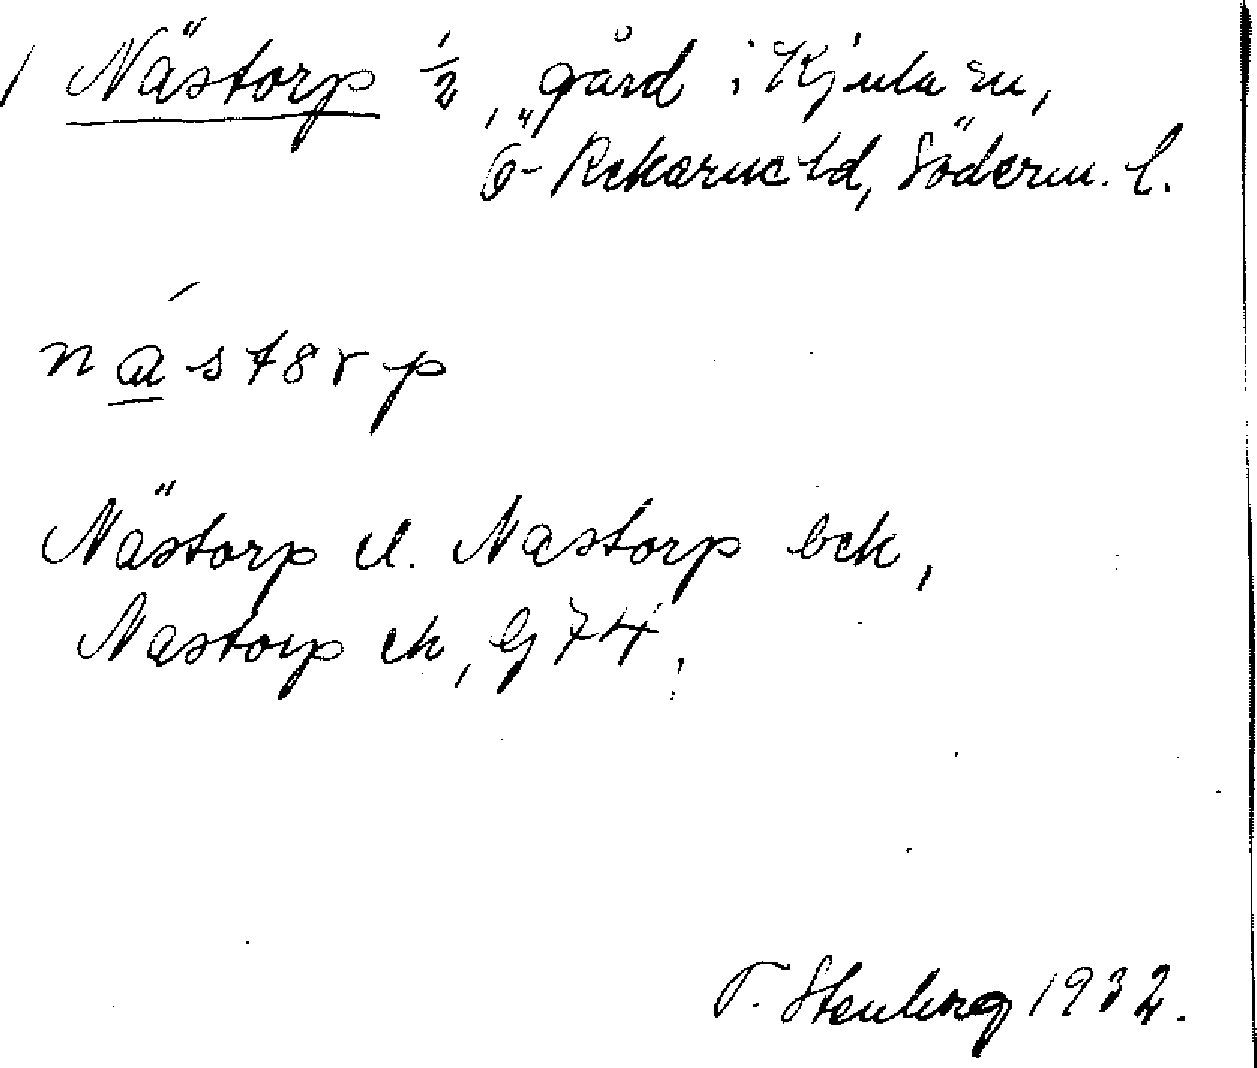 1 Nästorp 1/2, gård i Kjula sn,
Ö- Rekarne hd, Söderm. l.
nást8rp
Nästorp el. Nastorp bek,
Nastorp ek, Gj 74.
T. Stenberg 1932.